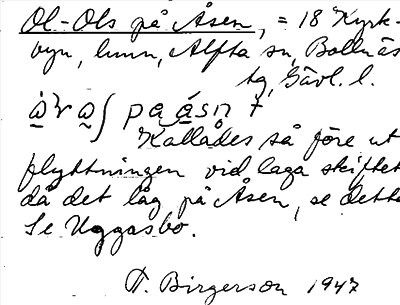 Ol-Ols på Åsen, = 18 Kyrk-
byn, hmn, Alfta sn, Bollnäs
tg, Gävl. l.
pa ásn +
Kallades så före ut
flyttningen vid laga skiftet
då det låg på Åsen, se detta
Se Uggasbo.
T. Birgerson 1947